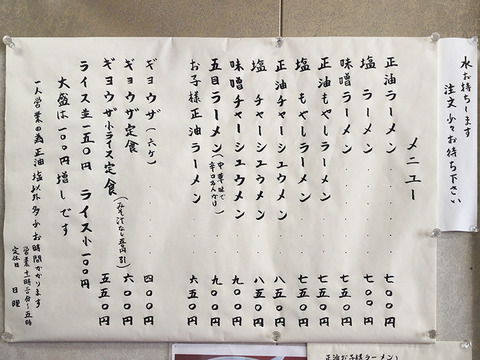 水お持ちします
注文少々お待ち下さい
メニュー
正油ラーメン 七〇〇円
塩ラーメン 七〇〇円
味噌ラーメン 七五〇円
正油もやしラーメン 七五〇円
塩もやしラーメン 七五〇円
正油チャーシュウメン 八五〇円
塩チャーシュウメン 八五〇円
味噌チャーシュウメン 九〇〇円
五目ラーメン(中華味で辛口あんかけ) 九〇〇円
お子様正油ラーメン 六五〇円
ギョウザ(六ケ) 四〇〇円
ギョウザ定食 六〇〇円
ギョウザ小ライス定食(みそ汁なし五〇円引) 五五〇円
ライス並一五〇円 ライス小一〇〇円
大盛は一〇〇円増しです
一人営業の為正油塩以外多少お時間かかります
定休日 日曜
正油お子様ラーメン